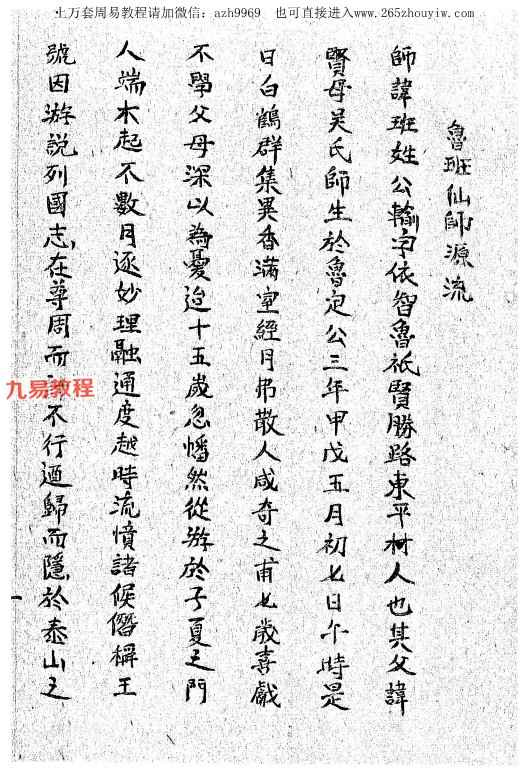 上万套周易教程请加微信：azh9969　也可直接进入www.265zhouyiw.com
魯班仙師源流
師諱班姓公輸字依智魯祇賢勝路東平村人也其父諱
賢母吴氏師生於魯定公三年甲戊五月初七日午時是
日白鶴群集異香滿室經月弗散人咸奇之甫七歲喜戲
不學父母深以為憂迨十五歲忽幡然從游於子夏之門
人端木起不數月逐妙理融通度越時流憤諸候僭稱王
號因游說列國志在尊周而不行迺歸而隱於泰山之
九易教程